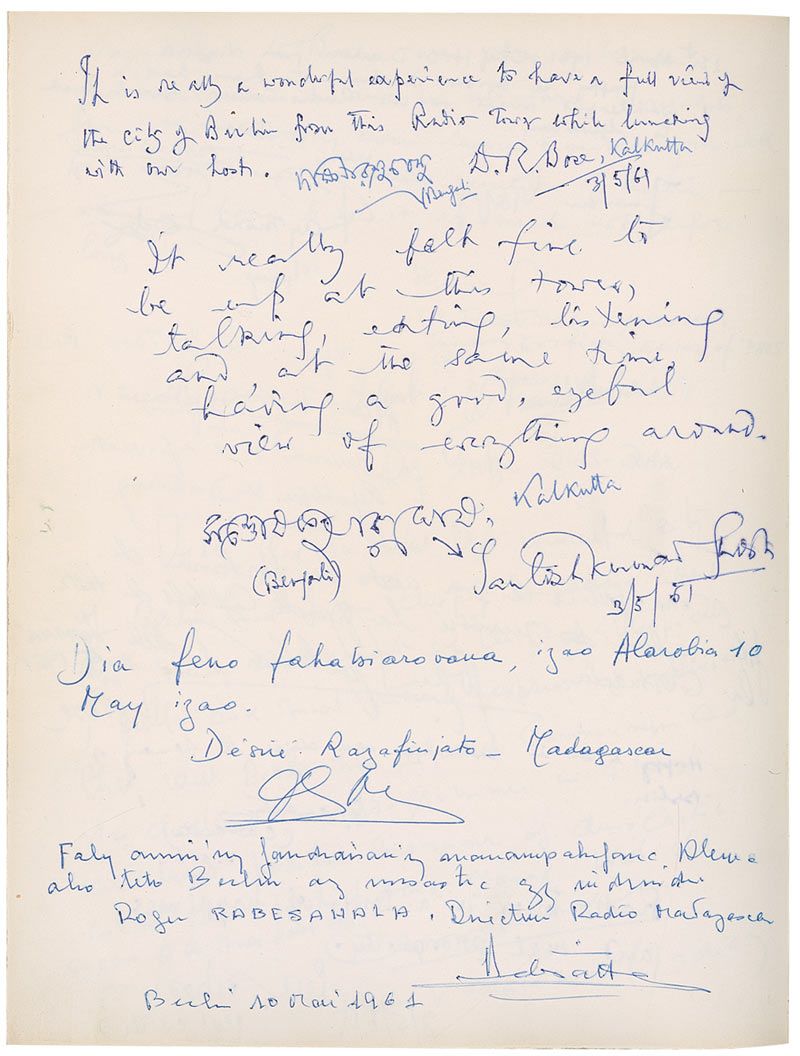 It is really a wonderful experience to have a full view of
the city of Berlin from this Radio Tower while lunching
with our hosts. D. R. Bose, Kalkutta
(Bengali) 3/5/61
It really felt fine to
be up at this tower,
talking, eating, listening
and, at the same time,
having a good, eyeful
view of everything around.
Kalkutta
(Bengali) Santosh Kumar Ghosh
3/5/61
Dia feno fahatsiarovana, izao Alarobia 10
May izao.
Désiré Razafinjato - Madagascar
Faly amin'ny fandraisan'ny
aho teto Berlin ay
Roger RABESAHALA. Directeur Radio Madagascar
Berlin 10 Mai 1961